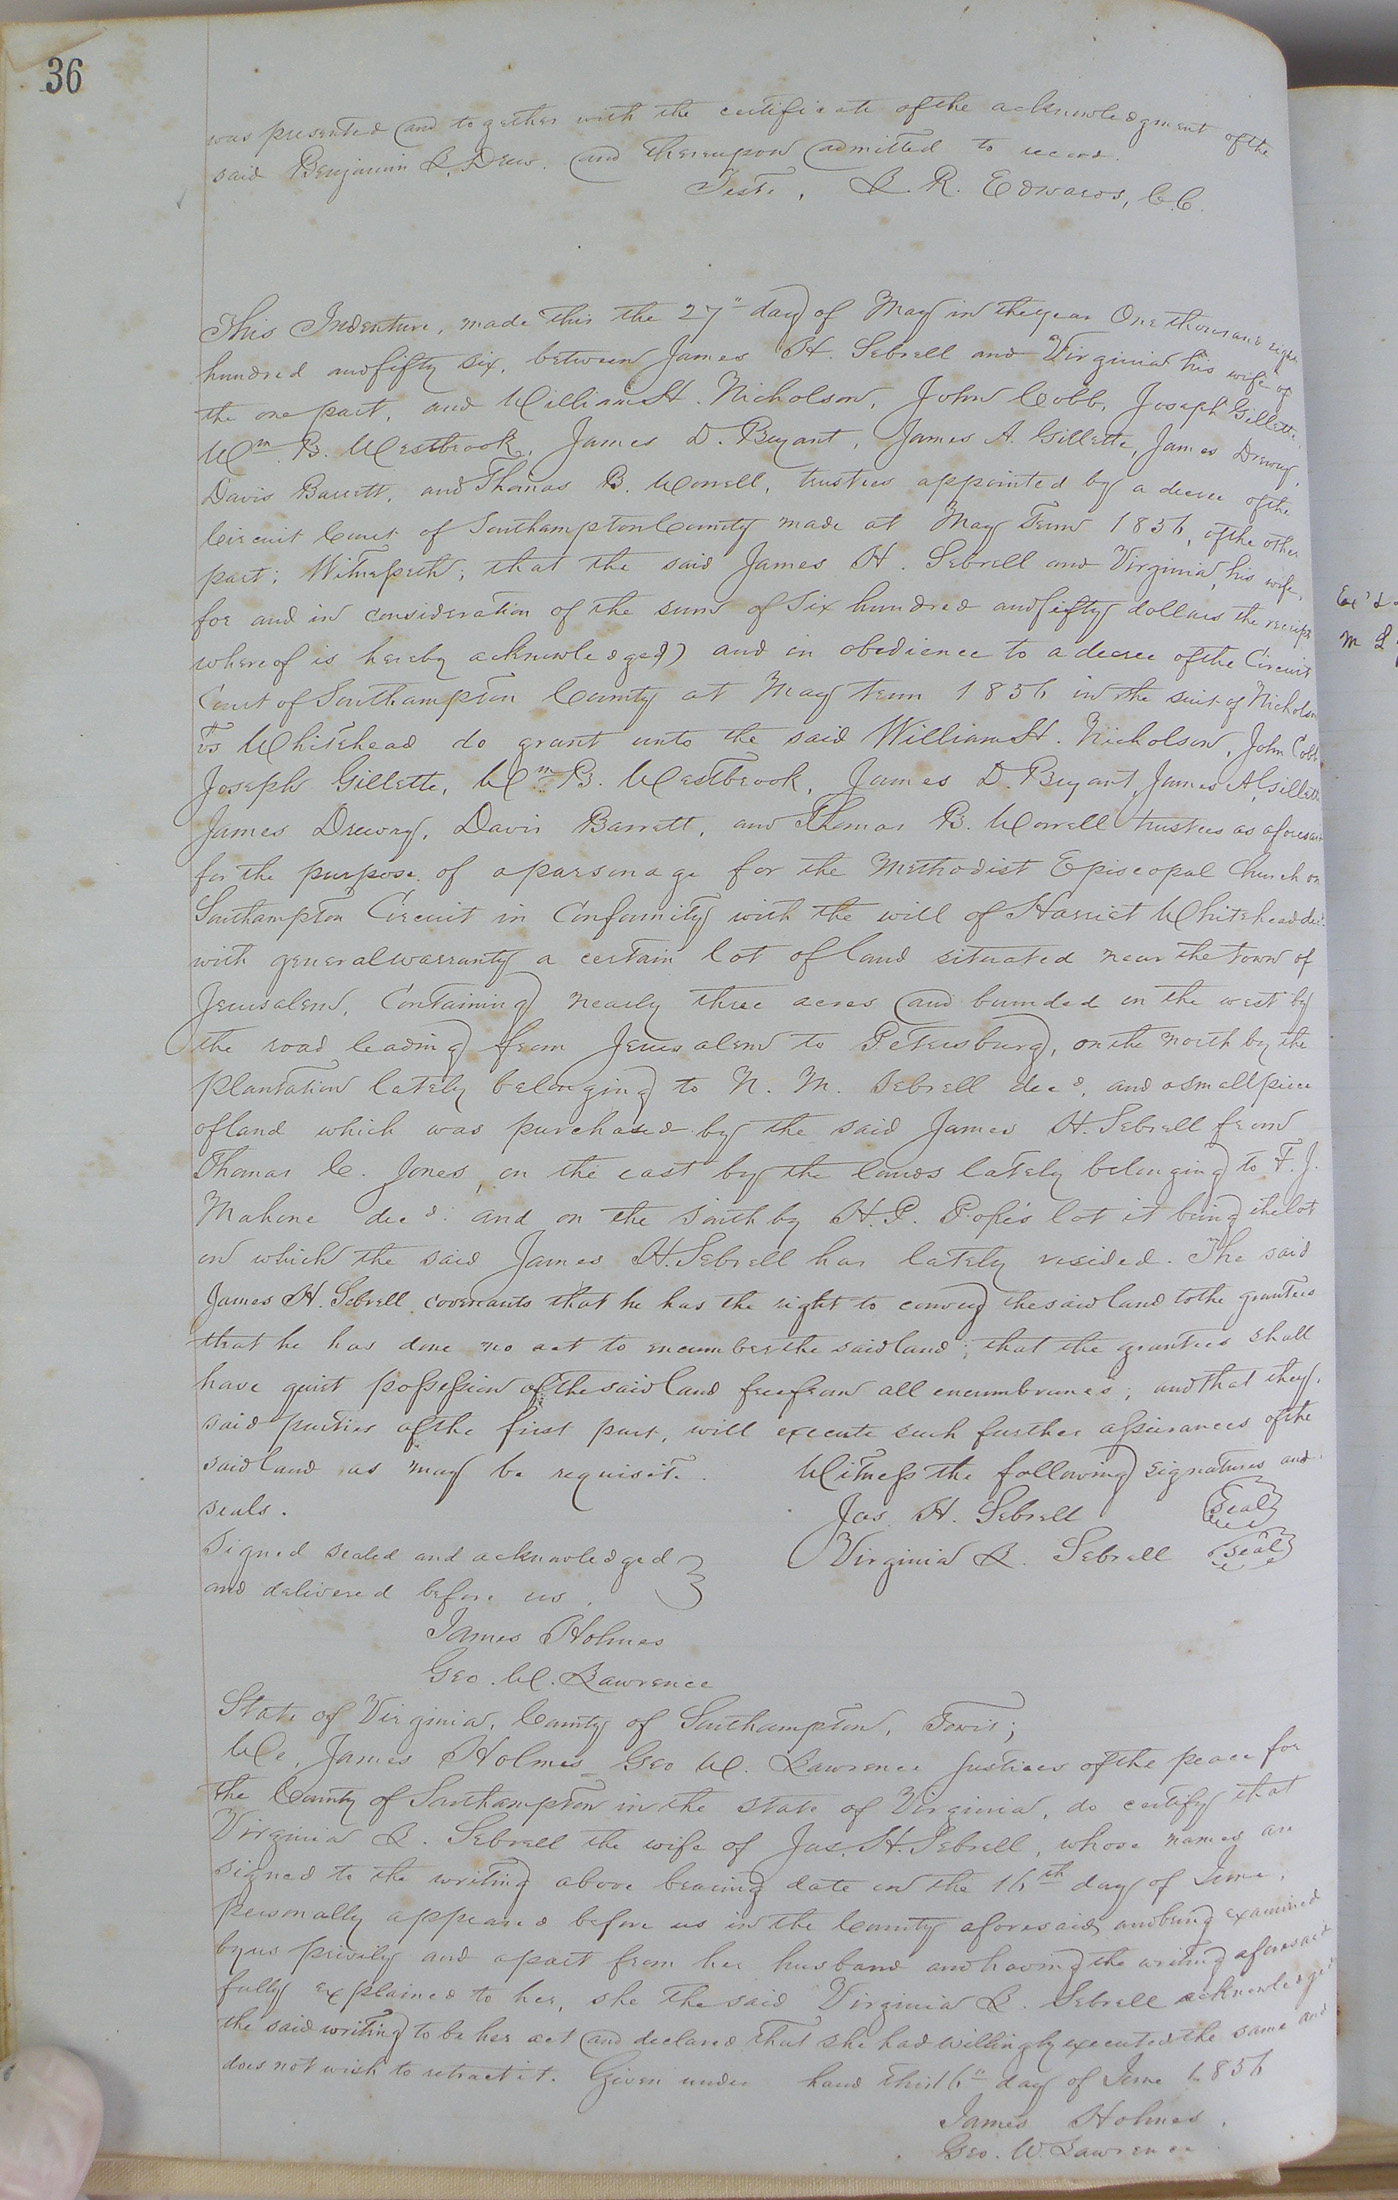 36
was presented and together with the certificate of the acknowledgment of the
said Benjamin L. Drew. and thereupon admitted to record.
Teste, L. R. Edwards, C.C.
This Indenture, made this the 27" day of May in the year One thousand eight
hundred and fifty six, between James H. Sebrell and Virginia his wife of
the one part, and William H. Nicholson, John Cobb, Joseph Gillette,
Wm. B. Westbrook, James D. Bryant, James A. Gillette, James Drewry,
Davis Barrett, and Thomas B. Worrell, trustees appointed by a decree of the
Circuit Court of Southampton County made at May Term 1856, of the other
part; Witnesseth; that the said James H. Sebrell and Virginia, his wife,
for and in consideration of the sum of Six hundred and fifty dollars the receipt
whereof is hereby acknowledged) and in obedience to a decree of the Circuit
Court of Southampton County at May term 1856 in the suit of Nicholson
vs Whitehead do grant unto the said William H. Nicholson, John Cobb,
Joseph Gillette, Wm. B. Westbrook, James D. Bryant, James A. Gillette
James Drewry, Davis Barrett, and Thomas B. Worrell trustees as aforesaid
for the purpose of a parsonage for the Methodist Episcopal Church on
Southampton Circuit in Conformity with the will of Harriet Whitehead decd.
with general warranty a certain lot of land situated near the town of
Jerusalem, Containing nearly three acres and bounded on the west by
the road leading from Jerusalem to Petersburg, on the north by the
plantation lately belonging to N. M. Sebrell decd, and a small piece
of land which was purchased by the said James H. Sebrell from
Thomas C. Jones, on the east by the lands lately belonging to F. J.
Mahone decd. and on the South by H. P. Pope's lot it being the lot
on which the said James H. Sebrell has lately resided. The said
James H. Sebrell covenants that he has the right to convey the said land to the grantees
that he has done no act to encumber the said land; that the grantees shall
have quiet possession of the said land free from all encumbrances; and that they,
said parties of the first part, will execute such further assurances of the
said land as may be requisite. Witness the following signatures and
seals.
Jas. H. Sebrell Seal
Signed sealed and acknowledged Virginia L. Sebrell Seal
and delivered before us.
James Holmes
Geo. W. Lawrence
State of Virginia, County of Southampton, Towit;
We, James Holmes Geo W. Lawrence Justices of the peace for
the County of Southampton in the state of Virginia, do certify that
Virginia L. Sebrell the wife of Jas. H. Sebrell, whose names are
signed to the writing above bearing date on the 16th day of June,
personally appeared before us in the County aforesaid, and being examined
by us privily and apart from her husband and having the writing aforesaid
fully explained to her, she the said Virginia L. Sebrell acknowledged
the said writing to be her act and declared that she had willingly executed the same and
does not wish to retract it. Given under hand this 16" day of June 1856
James Holmes.
Geo. W. Lawrence